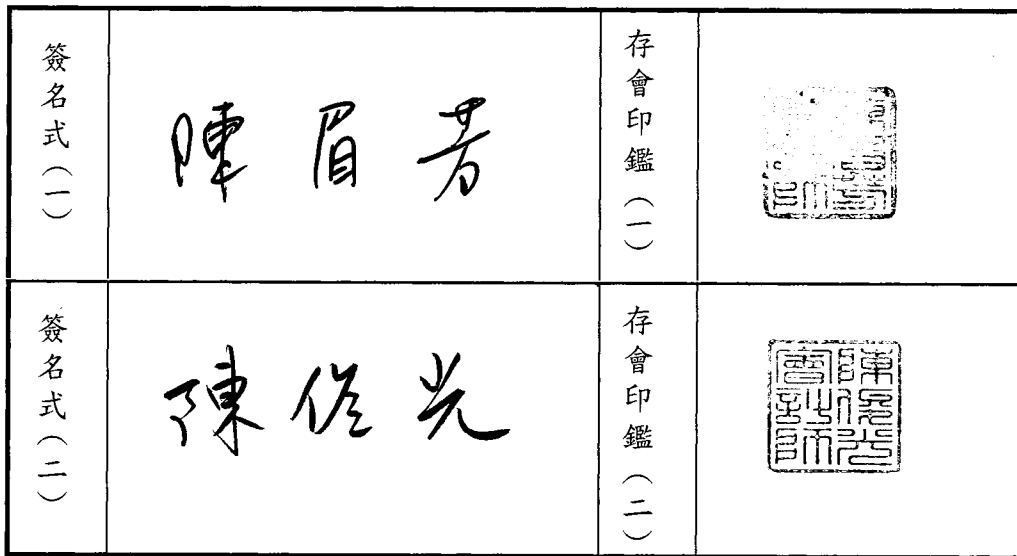 簽名式（一）
陳眉芳
存會印鑑（一）
簽名式（二）
陳俊光
存會印鑑（二）
陳俊光
會計師